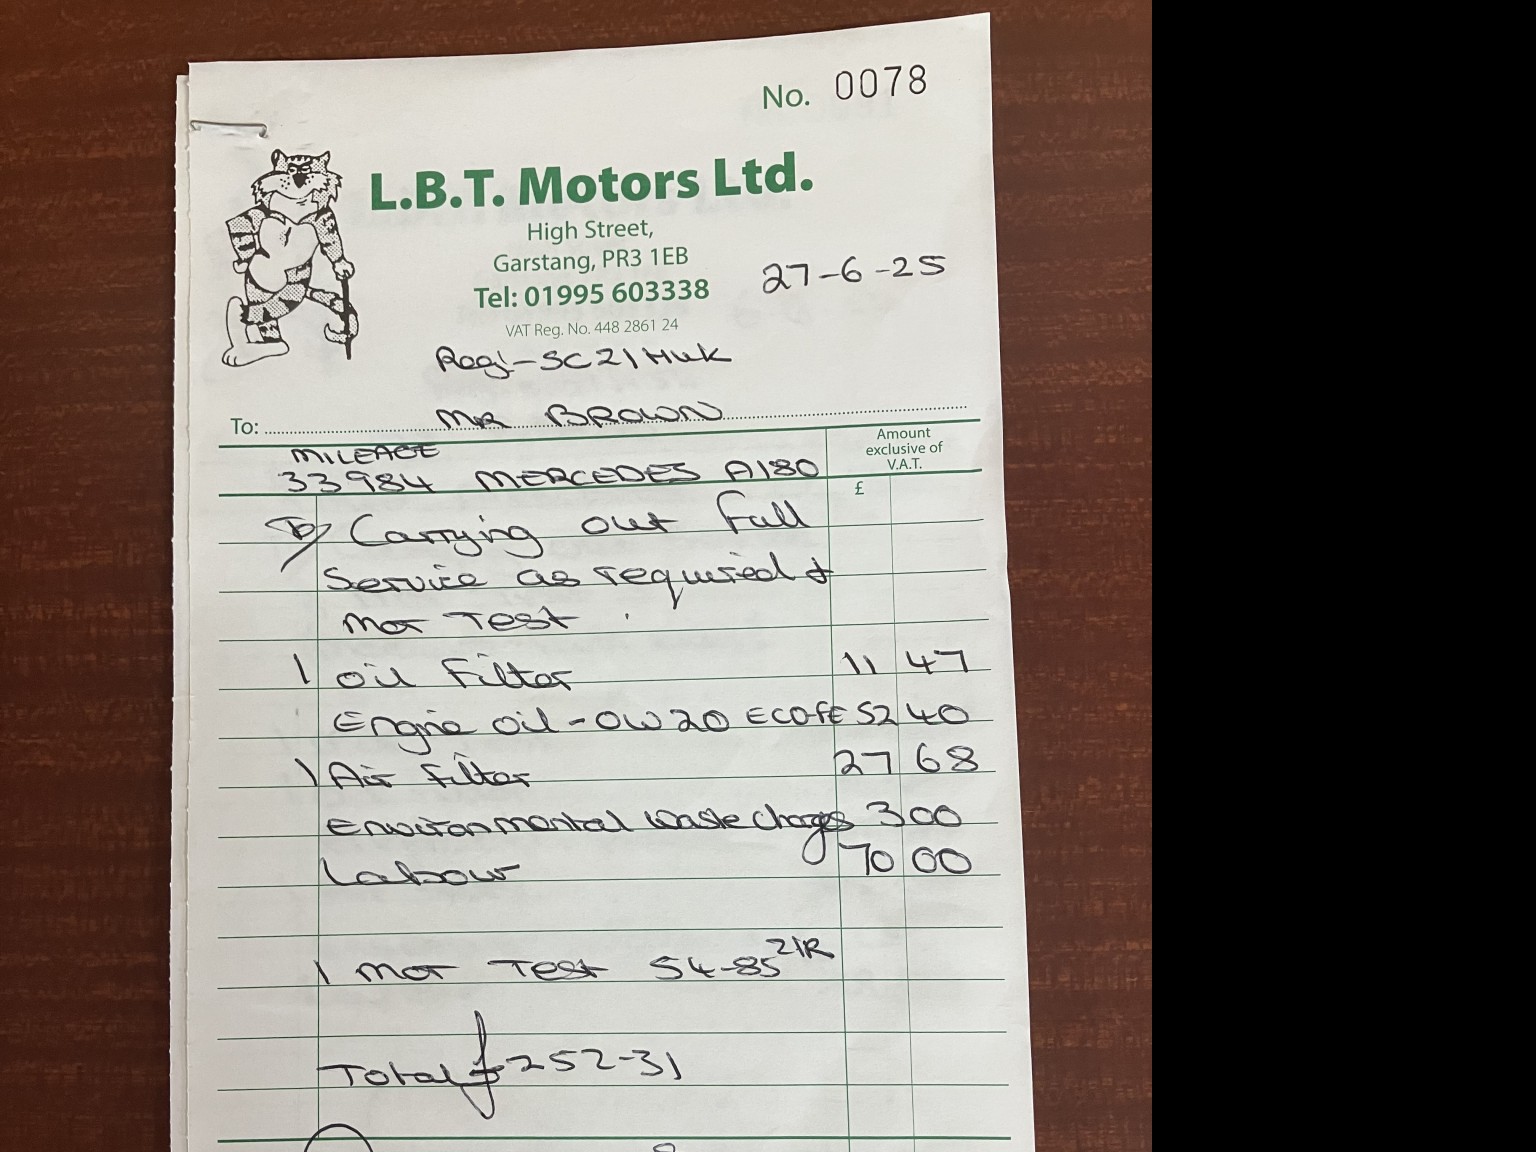 No. 0078
L.B.T. Motors Ltd.
High Street,
Garstang, PR3 1EB
Tel: 01995 603338
27-6-25
VAT Reg. No. 448 2861 24
Reg:- SC21HUK
To: MR BROWN
Amount exclusive of V.A.T.
MILEAGE
33984 MERCEDES A180
£
To Carrying out full
Service as required +
MOT Test.
1 Oil Filter 11 47
Engine oil - 0W20 ECOFE 52 40
1 Air Filter 27 68
Environmental waste charge 3 00
Labour 70 00
1 MOT Test 54-85 ZIR
Total £252-31